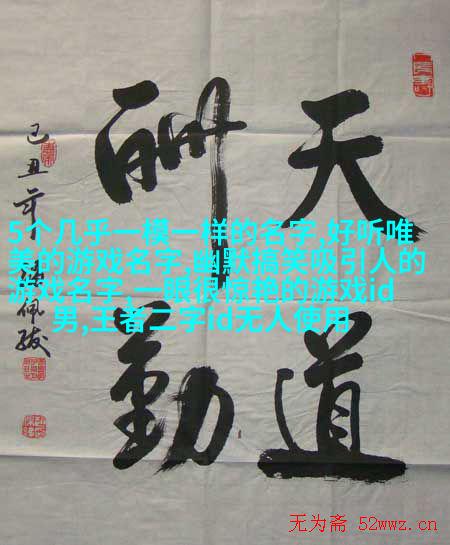 天道
酬勤
己丑年佩
5个几乎一模一样的名字,好听唯
美的游戏名字,幽默搞笑吸引人的
游戏名字,一眼很惊艳的游戏id
男,王者二字id无人使用
无为斋 52wwz.cn